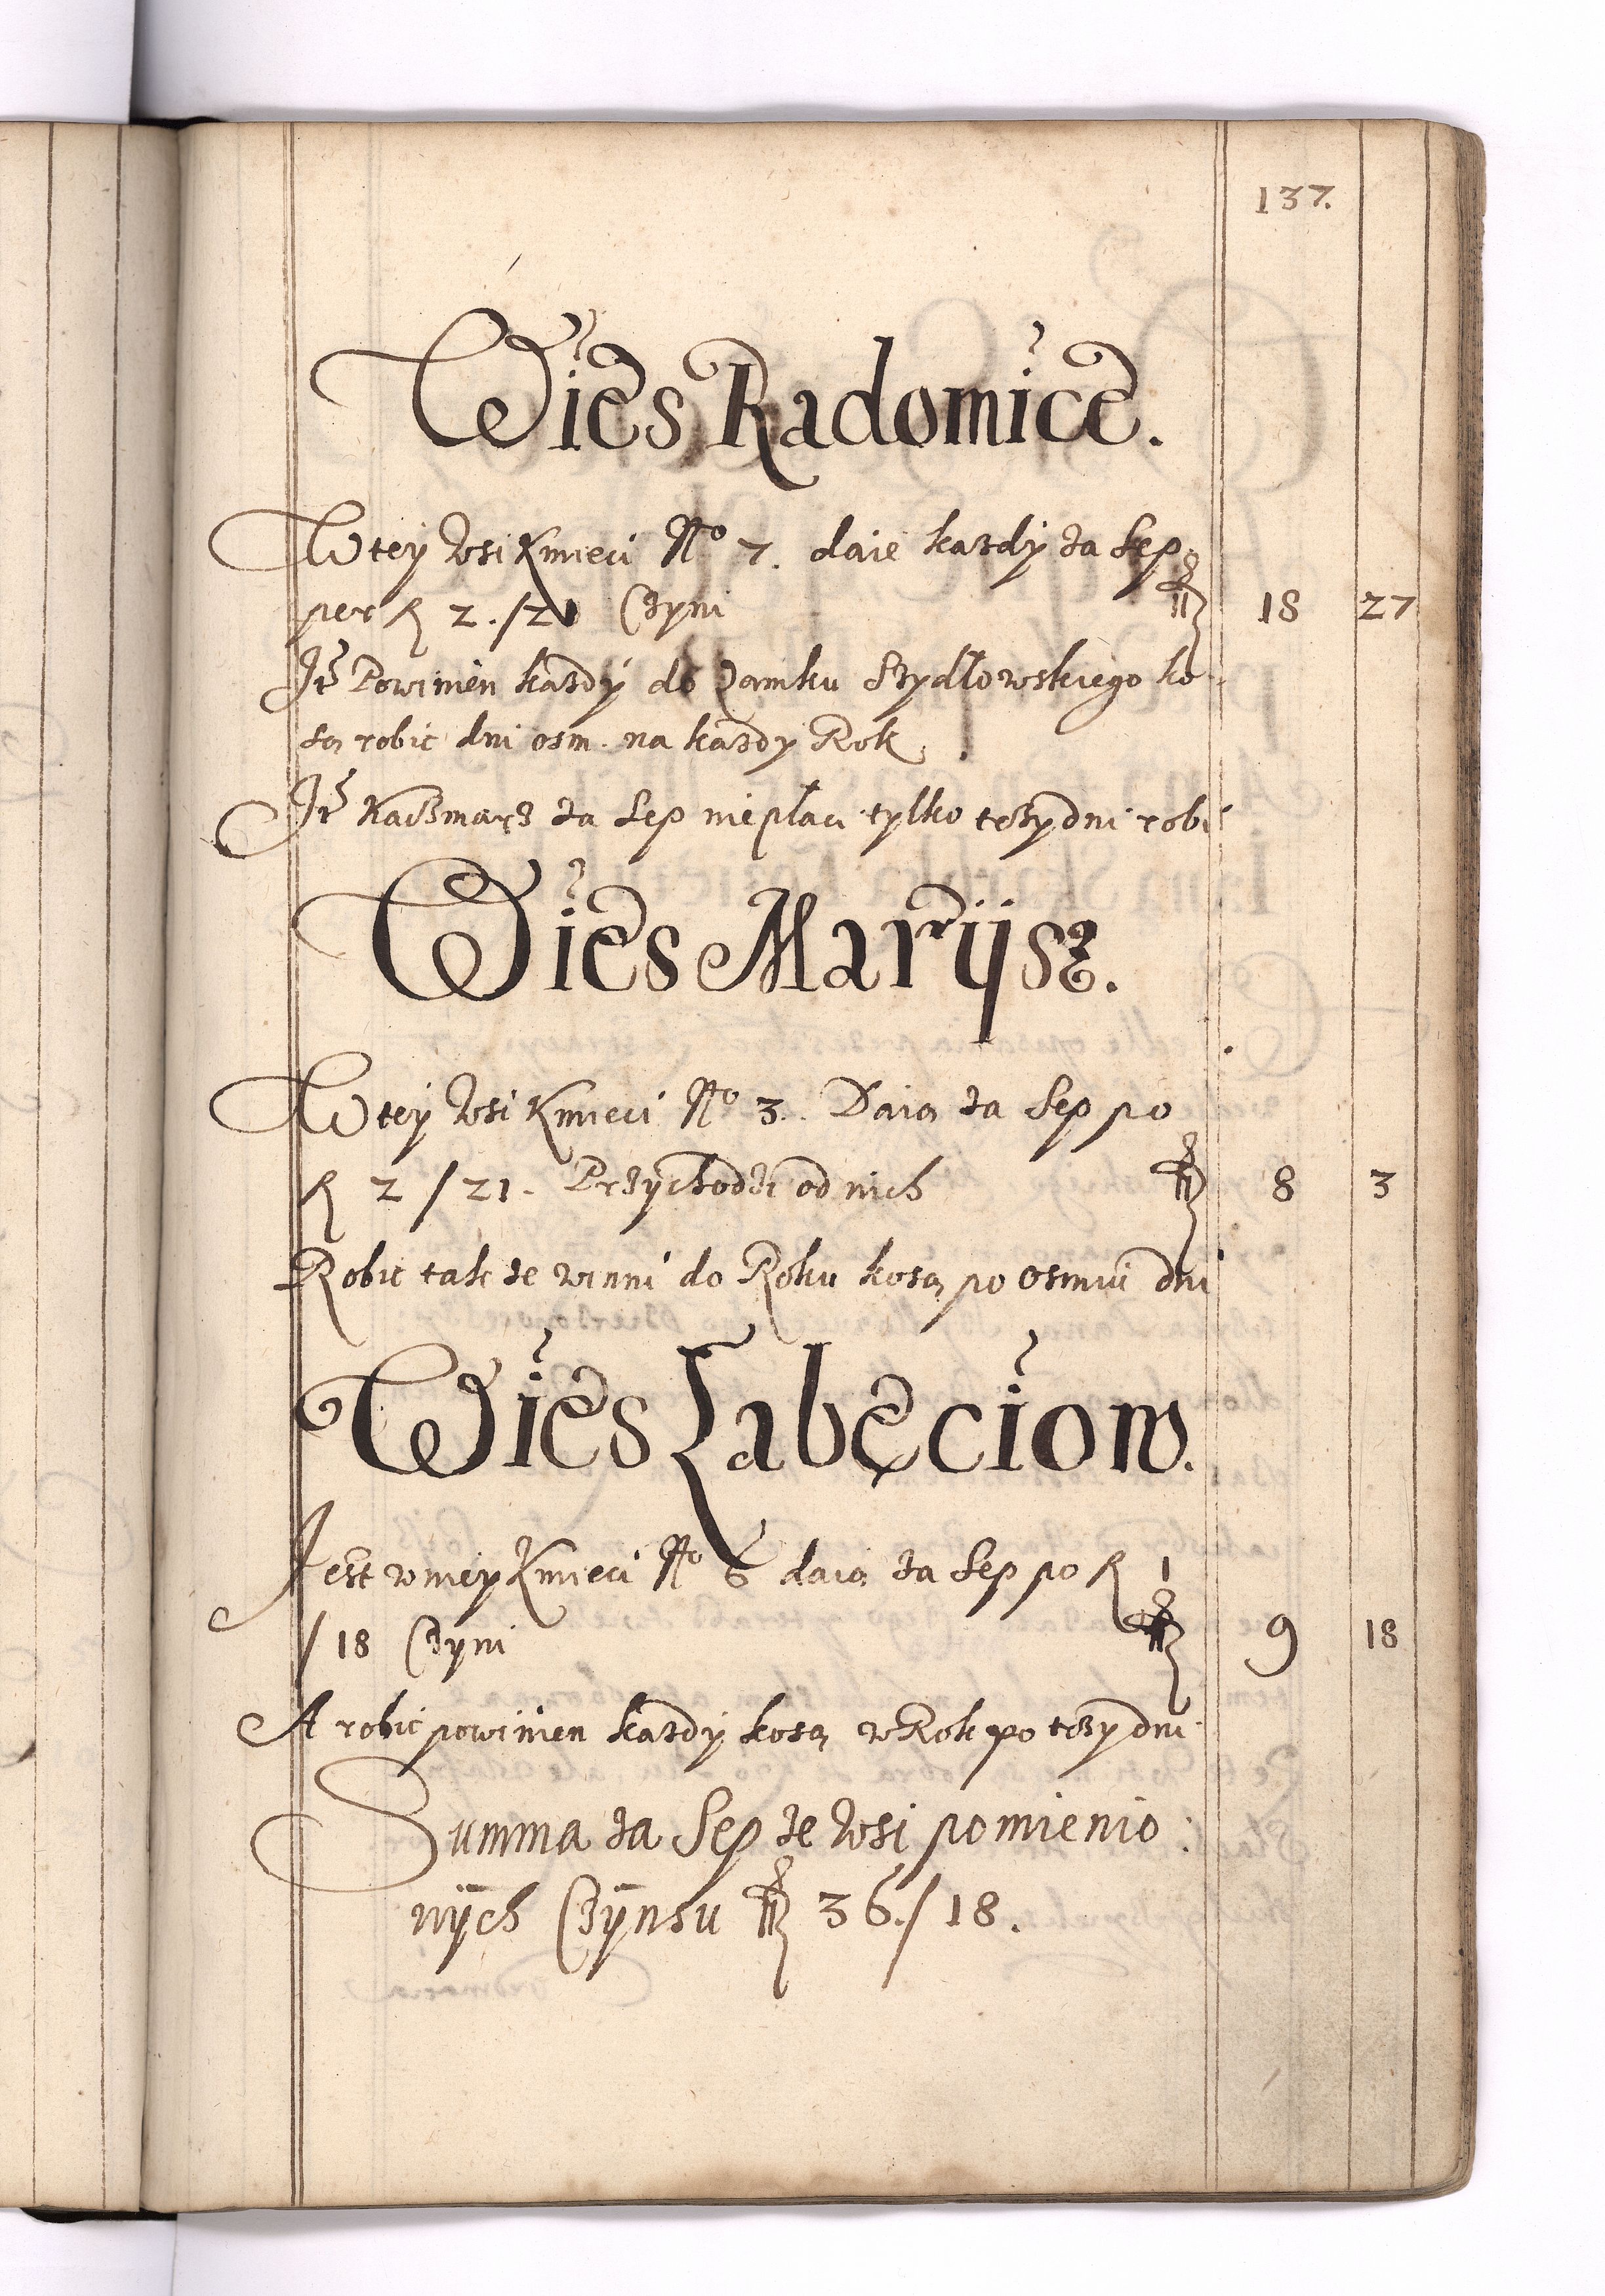 137.
Wies Radomice.
W tey wsi Kmieci No 7. daie kazdy za Sep
per f 2./21 Czyni fl 18 27
Ite Powinien kazdy do Zamku Szydłowskiego ko-
są robic dni osm. na kazdy Rok
Ite Kaczmarz za Sep niepłaci tylko trzy dni robi
Wies Marijsz.
W tey wsi Kmieci No 3. Daią za Sep po
f 2/21. Przychodzi od nich fl 8 3
Robic takze winni do Roku kosą po osmiu dni
Wies Łabęciow.
Jest w niey Kmieci No 6 daią za Sep po f 1
/18 Czyni fl 9 18
A robic powinien kazdy kosą w Rok po trzy dni
Summa za Sep ze wsi pomienio:
nÿch Czÿnsu fl 36./18.